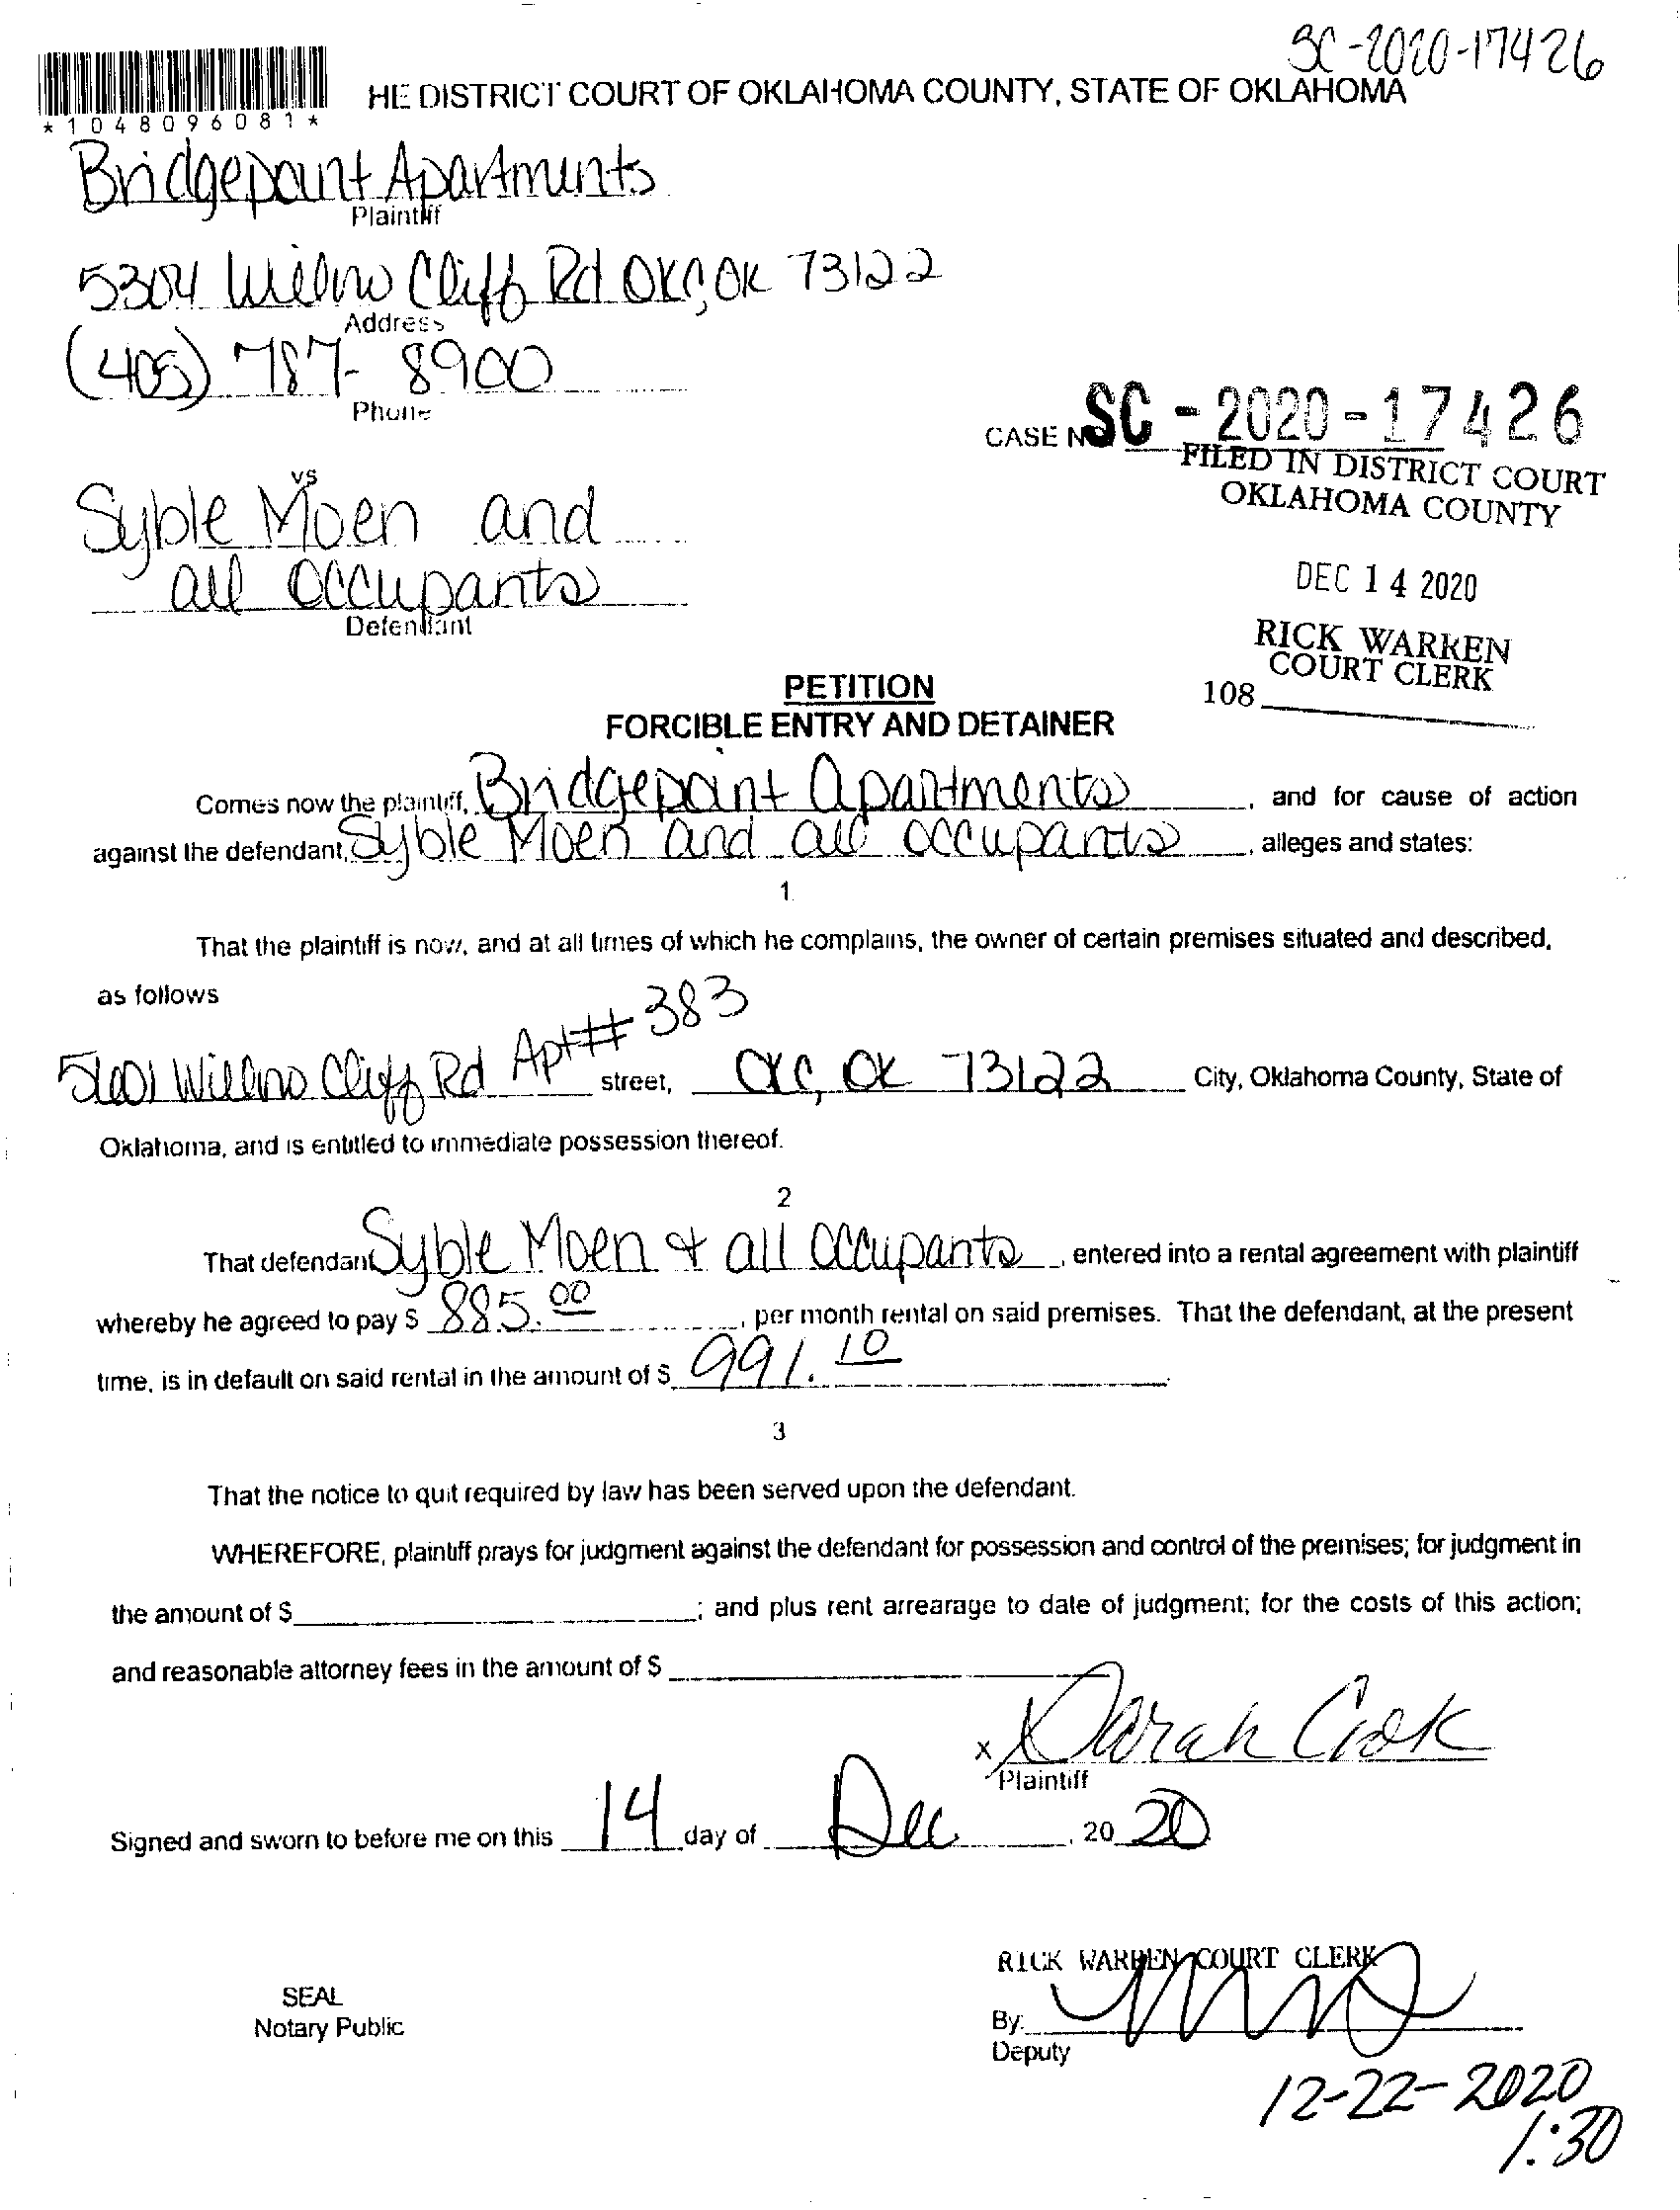 SC-2020-17426
HE DISTRICT COURT OF OKLAHOMA COUNTY, STATE OF OKLAHOMA
*1048096081*
Bridgepoint Apartments
Plaintiff
5304 Willow Cliff Rd OKC, OK 73122
Address
(405) 787-8900
Phone
CASE NO SC-2020-17426
FILED IN DISTRICT COURT
OKLAHOMA COUNTY
vs
Syble Moen and
all occupants
Defendant
DEC 14 2020
RICK WARREN
COURT CLERK
108
PETITION
FORCIBLE ENTRY AND DETAINER
Comes now the plaintiff, Bridgepoint Apartments, and for cause of action
against the defendant, Syble Moen and all occupants, alleges and states:
1.
That the plaintiff is now, and at all times of which he complains, the owner of certain premises situated and described,
as follows
5601 Willow Cliff Rd Apt# 383 street, OKC, OK 73122 City, Oklahoma County, State of
Oklahoma, and is entitled to immediate possession thereof.
2
That defendant Syble Moen & all occupants, entered into a rental agreement with plaintiff
whereby he agreed to pay $ 885.00, per month rental on said premises. That the defendant, at the present
time, is in default on said rental in the amount of $ 991.10
3
That the notice to quit required by law has been served upon the defendant.
WHEREFORE, plaintiff prays for judgment against the defendant for possession and control of the premises; for judgment in
the amount of $ ; and plus rent arrearage to date of judgment; for the costs of this action;
and reasonable attorney fees in the amount of $
x Sarah Cook
Plaintiff
Signed and sworn to before me on this 14 day of Dec, 20 20
RICK WARREN COURT CLERK
SEAL
Notary Public
By:
Deputy
12-22-2020
1:30